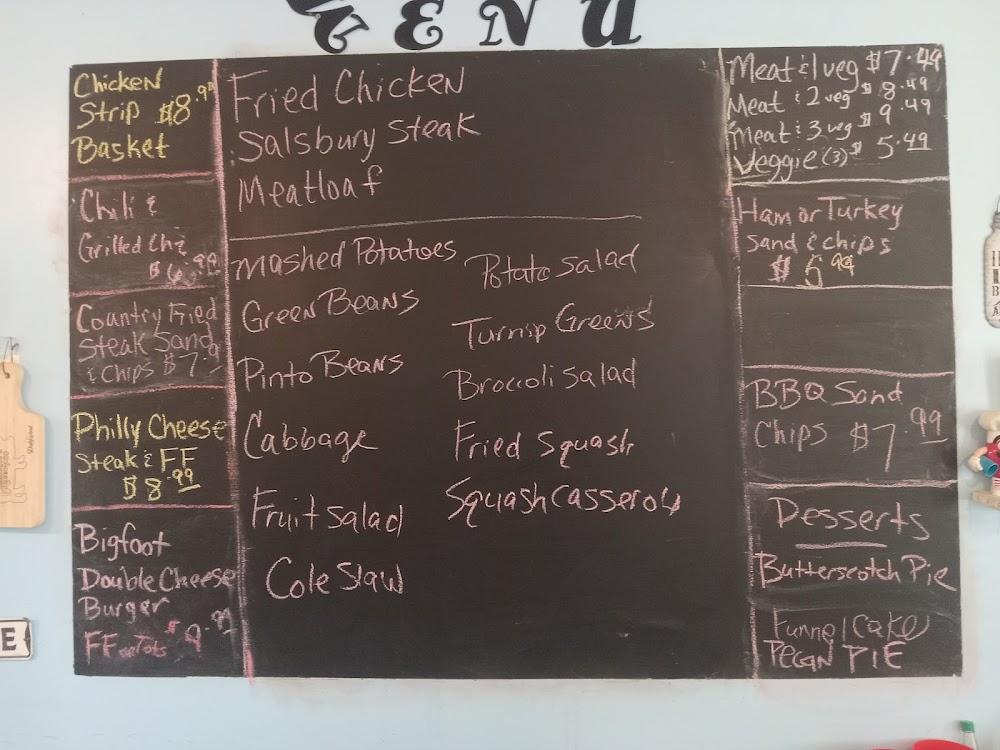 MENU
Chicken
Strip $8.99
Basket
Chili &
Grilled Chz
$6.99
Country Fried
Steak Sand
& Chips $7.9
Philly Cheese
Steak & FF
$8.99
Bigfoot
Double Cheese
Burger
FF or Tots $9.99
Fried Chicken
Salsbury Steak
Meatloaf
Mashed Potatoes
Green Beans
Pinto Beans
Cabbage
Fruit salad
Cole Slaw
Potato salad
Turnip Greens
Broccoli salad
Fried Squash
Squash Casserole
Meat & 1 veg $7.49
Meat & 2 veg $8.49
Meat & 3 veg $9.49
Veggie (3) $5.49
Ham or Turkey
Sand & chips
$5.99
BBQ Sand
Chips $7.99
Desserts
Butterscotch Pie
Funnel Cake
PECAN PIE
E